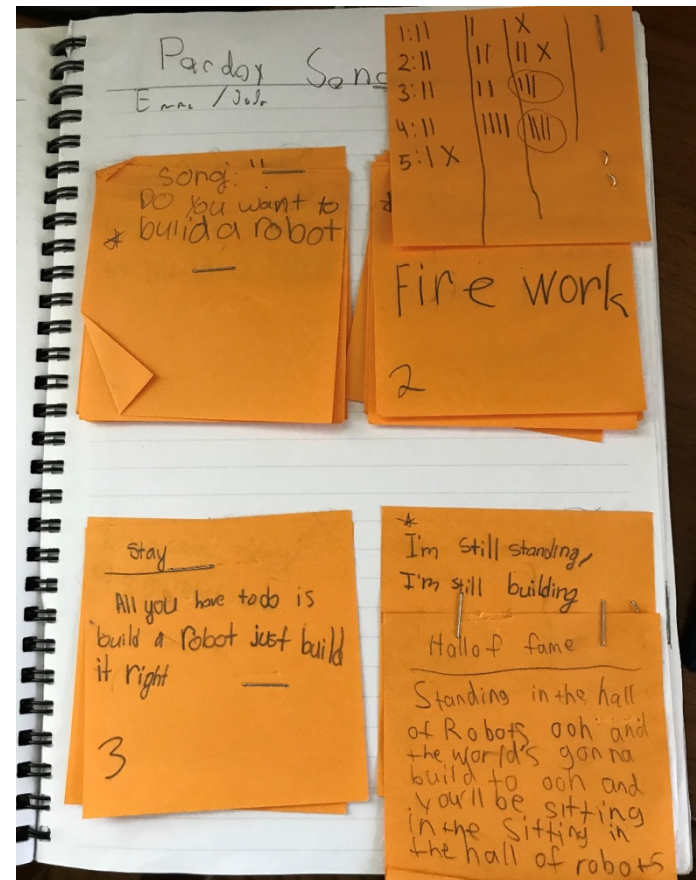 Pardoy Song
1:11 11 X
2:11 11 11 X
3:11 11 111
4:11 1111
5:1 X
song:
DO you want to
* bulid a robot
Fire work
2
stay
All you have todo is
build a robot just build
it right
3
*
I'm still standing,
I'm still building
Hall of fame
Standing in the hall
of Robots ooh and
the world's gonna
build to ooh and
you'll be sitting
in the sitting in
the hall of robots